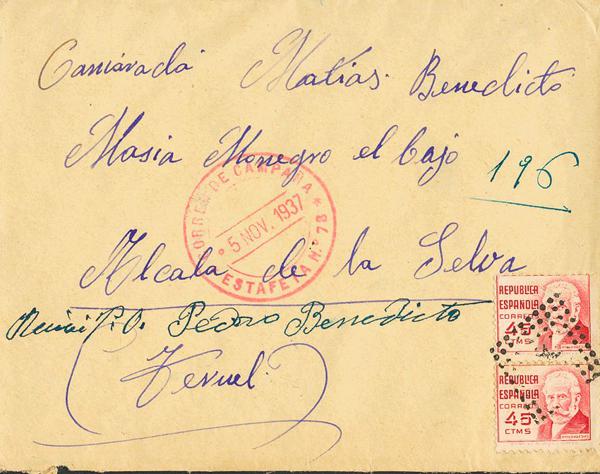 Camarada Matías Benedicto
Masia Monegro el bajo
196
CORREO DE CAMPAÑA
5 NOV. 1937
ESTAFETA N.º 78
Alcala de la Selva
Recibi P.O. Pedro Benedicto
(Teruel)
REPUBLICA
ESPAÑOLA
CORREOS
45
CTMS
REPUBLICA
ESPAÑOLA
CORREOS
45
CTMS